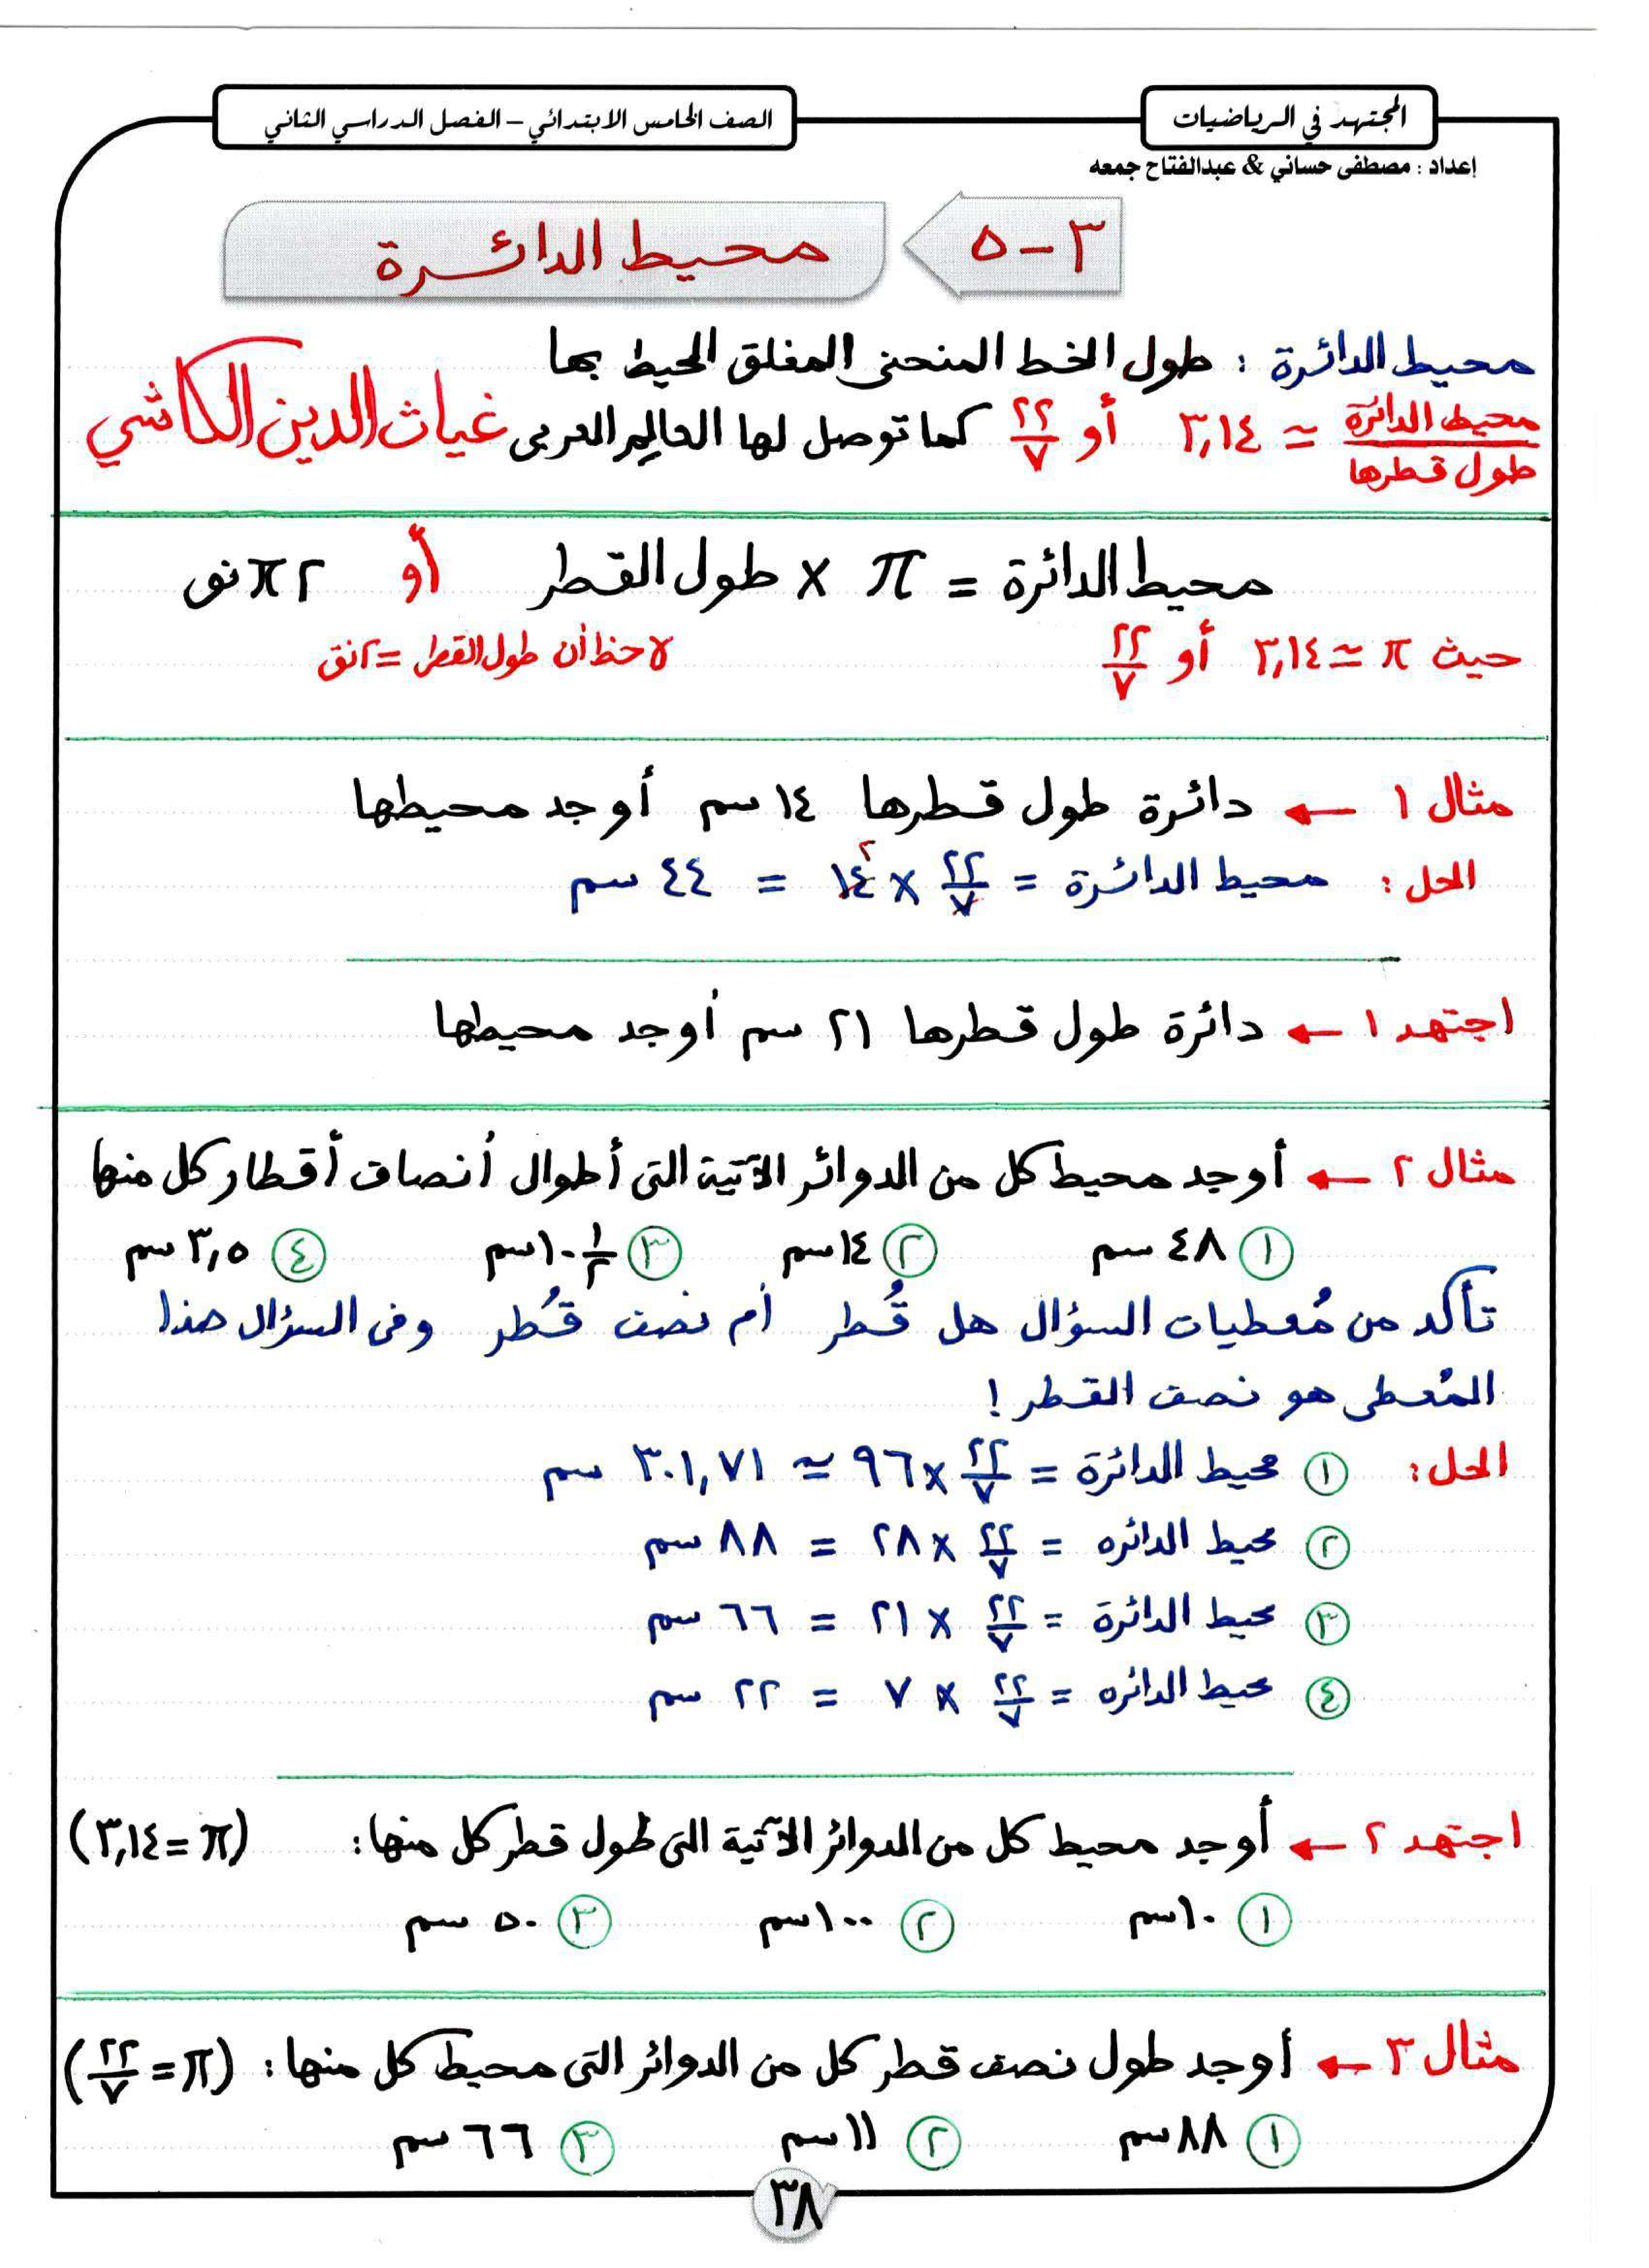 المجتهد في الرياضيات
الصف الخامس الابتدائي – الفصل الدراسي الثاني
إعداد : مصطفى حساني & عبدالفتاح جمعه
٣ - ٥ محيط الدائرة
محيط الدائرة : طول الخط المنحنى المغلق المحيط بها
محيط الدائرة / طول قطرها ≃ ٣,١٤ أو ٢٢/٧ كما توصل لها العالم العربى غياث الدين الكاشي
محيط الدائرة = π × طول القطر أو ٢ π نق
حيث π ≃ ٣,١٤ أو ٢٢/٧ لاحظ أن طول القطر = ٢ نق
مثال ١ ← دائرة طول قطرها ١٤ سم أوجد محيطها
الحل : محيط الدائرة = ٢٢/٧ × ١٤ ٢ = ٤٤ سم
اجتهد ١ ← دائرة طول قطرها ٢١ سم أوجد محيطها
مثال ٢ ← أوجد محيط كل من الدوائر الآتية التى أطوال أنصاف أقطار كل منها
١ ٤٨ سم ٢ ١٤ سم ٣ ١٠ ١/٢ سم ٤ ٣,٥ سم
تأكد من مُعطيات السؤال هل قُطر أم نصف قُطر وفى السؤال هذا
المُعطى هو نصف القطر !
الحل : ١ محيط الدائرة = ٢٢/٧ × ٩٦ ≃ ٣٠١,٧١ سم
٢ محيط الدائره = ٢٢/٧ × ٢٨ = ٨٨ سم
٣ محيط الدائرة = ٢٢/٧ × ٢١ = ٦٦ سم
٤ محيط الدائره = ٢٢/٧ × ٧ = ٢٢ سم
اجتهد ٢ ← أوجد محيط كل من الدوائر الآتية التى طول قطر كل منها : (π = ٣,١٤)
١ ١٠ سم ٢ ١٠٠ سم ٣ ٥٠ سم
مثال ٣ ← أوجد طول نصف قطر كل من الدوائر التى محيط كل منها : (π = ٢٢/٧)
١ ٨٨ سم ٢ ١١ سم ٣ ٦٦ سم
٣٨